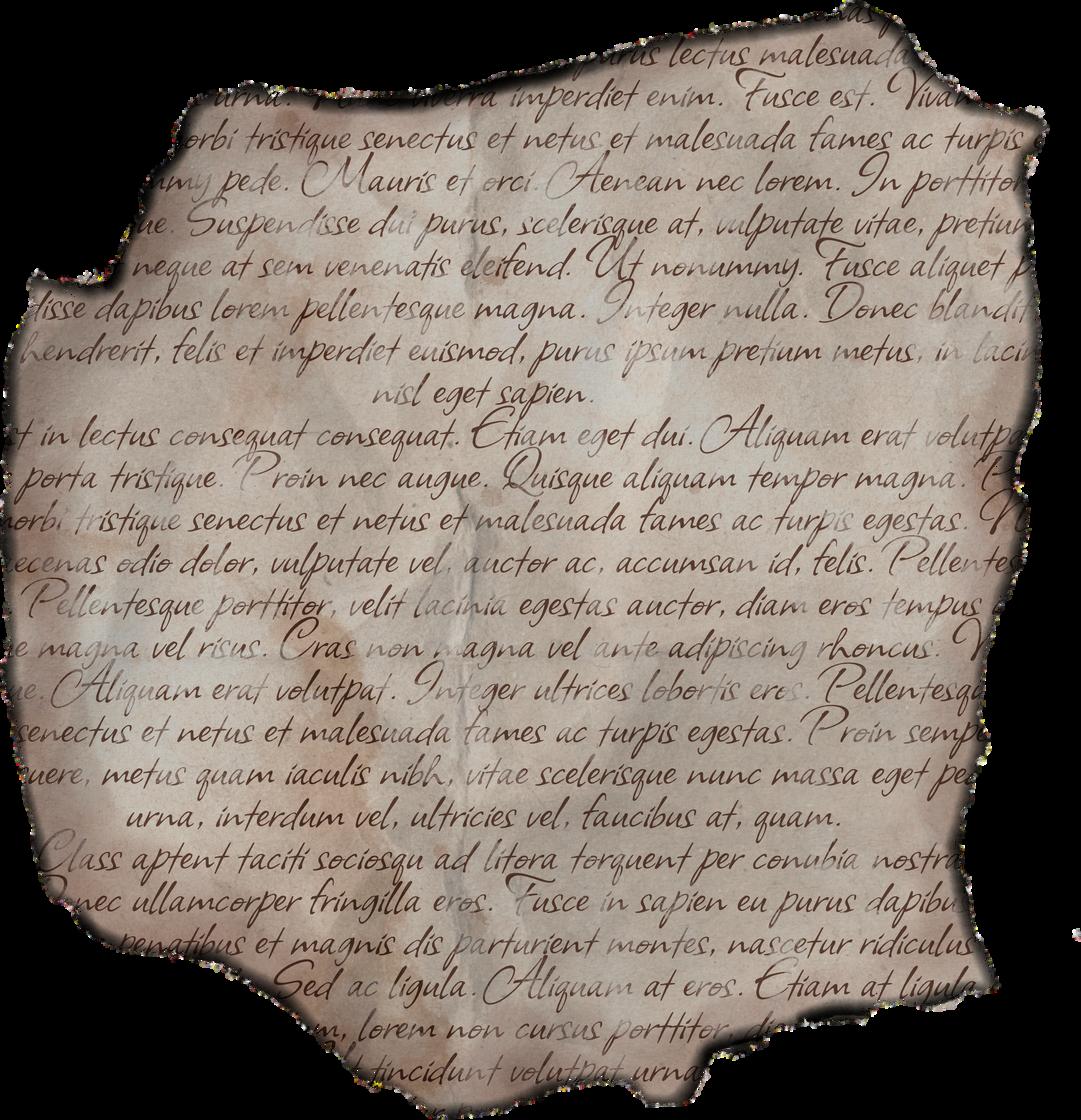 purus lectus malesuada
urna. viverra imperdiet enim. Fusce est. Vivam
orbi tristique senectus et netus et malesuada fames ac turpis e
mmy pede. Mauris et orci. Aenean nec lorem. In porttitor
ue. Suspendisse dui purus, scelerisque at, vulputate vitae, pretium
neque at sem venenatis eleifend. Ut nonummy. Fusce aliquet p
disse dapibus lorem pellentesque magna. Integer nulla. Donec blandit
hendrerit, felis et imperdiet euismod, purus ipsum pretium metus, in lacin
nisl eget sapien.
t in lectus consequat consequat. Etiam eget dui. Aliquam erat volutpa
porta tristique. Proin nec augue. Quisque aliquam tempor magna. P
morbi tristique senectus et netus et malesuada fames ac turpis egestas. N
ecenas odio dolor, vulputate vel, auctor ac, accumsan id, felis. Pellentes
Pellentesque porttitor, velit lacinia egestas auctor, diam eros tempus
e magna vel risus. Cras non magna vel ante adipiscing rhoncus. V
ue. Aliquam erat volutpat. Integer ultrices lobortis eros. Pellentesqu
senectus et netus et malesuada fames ac turpis egestas. Proin sempe
uere, metus quam iaculis nibh, vitae scelerisque nunc massa eget ped
urna, interdum vel, ultricies vel, faucibus at, quam.
Class aptent taciti sociosqu ad litora torquent per conubia nostra
Donec ullamcorper fringilla eros. Fusce in sapien eu purus dapibu
penatibus et magnis dis parturient montes, nascetur ridiculus
Sed ac ligula. Aliquam at eros. Etiam at ligula
m, lorem non cursus porttitor, di
tincidunt volutpat urna